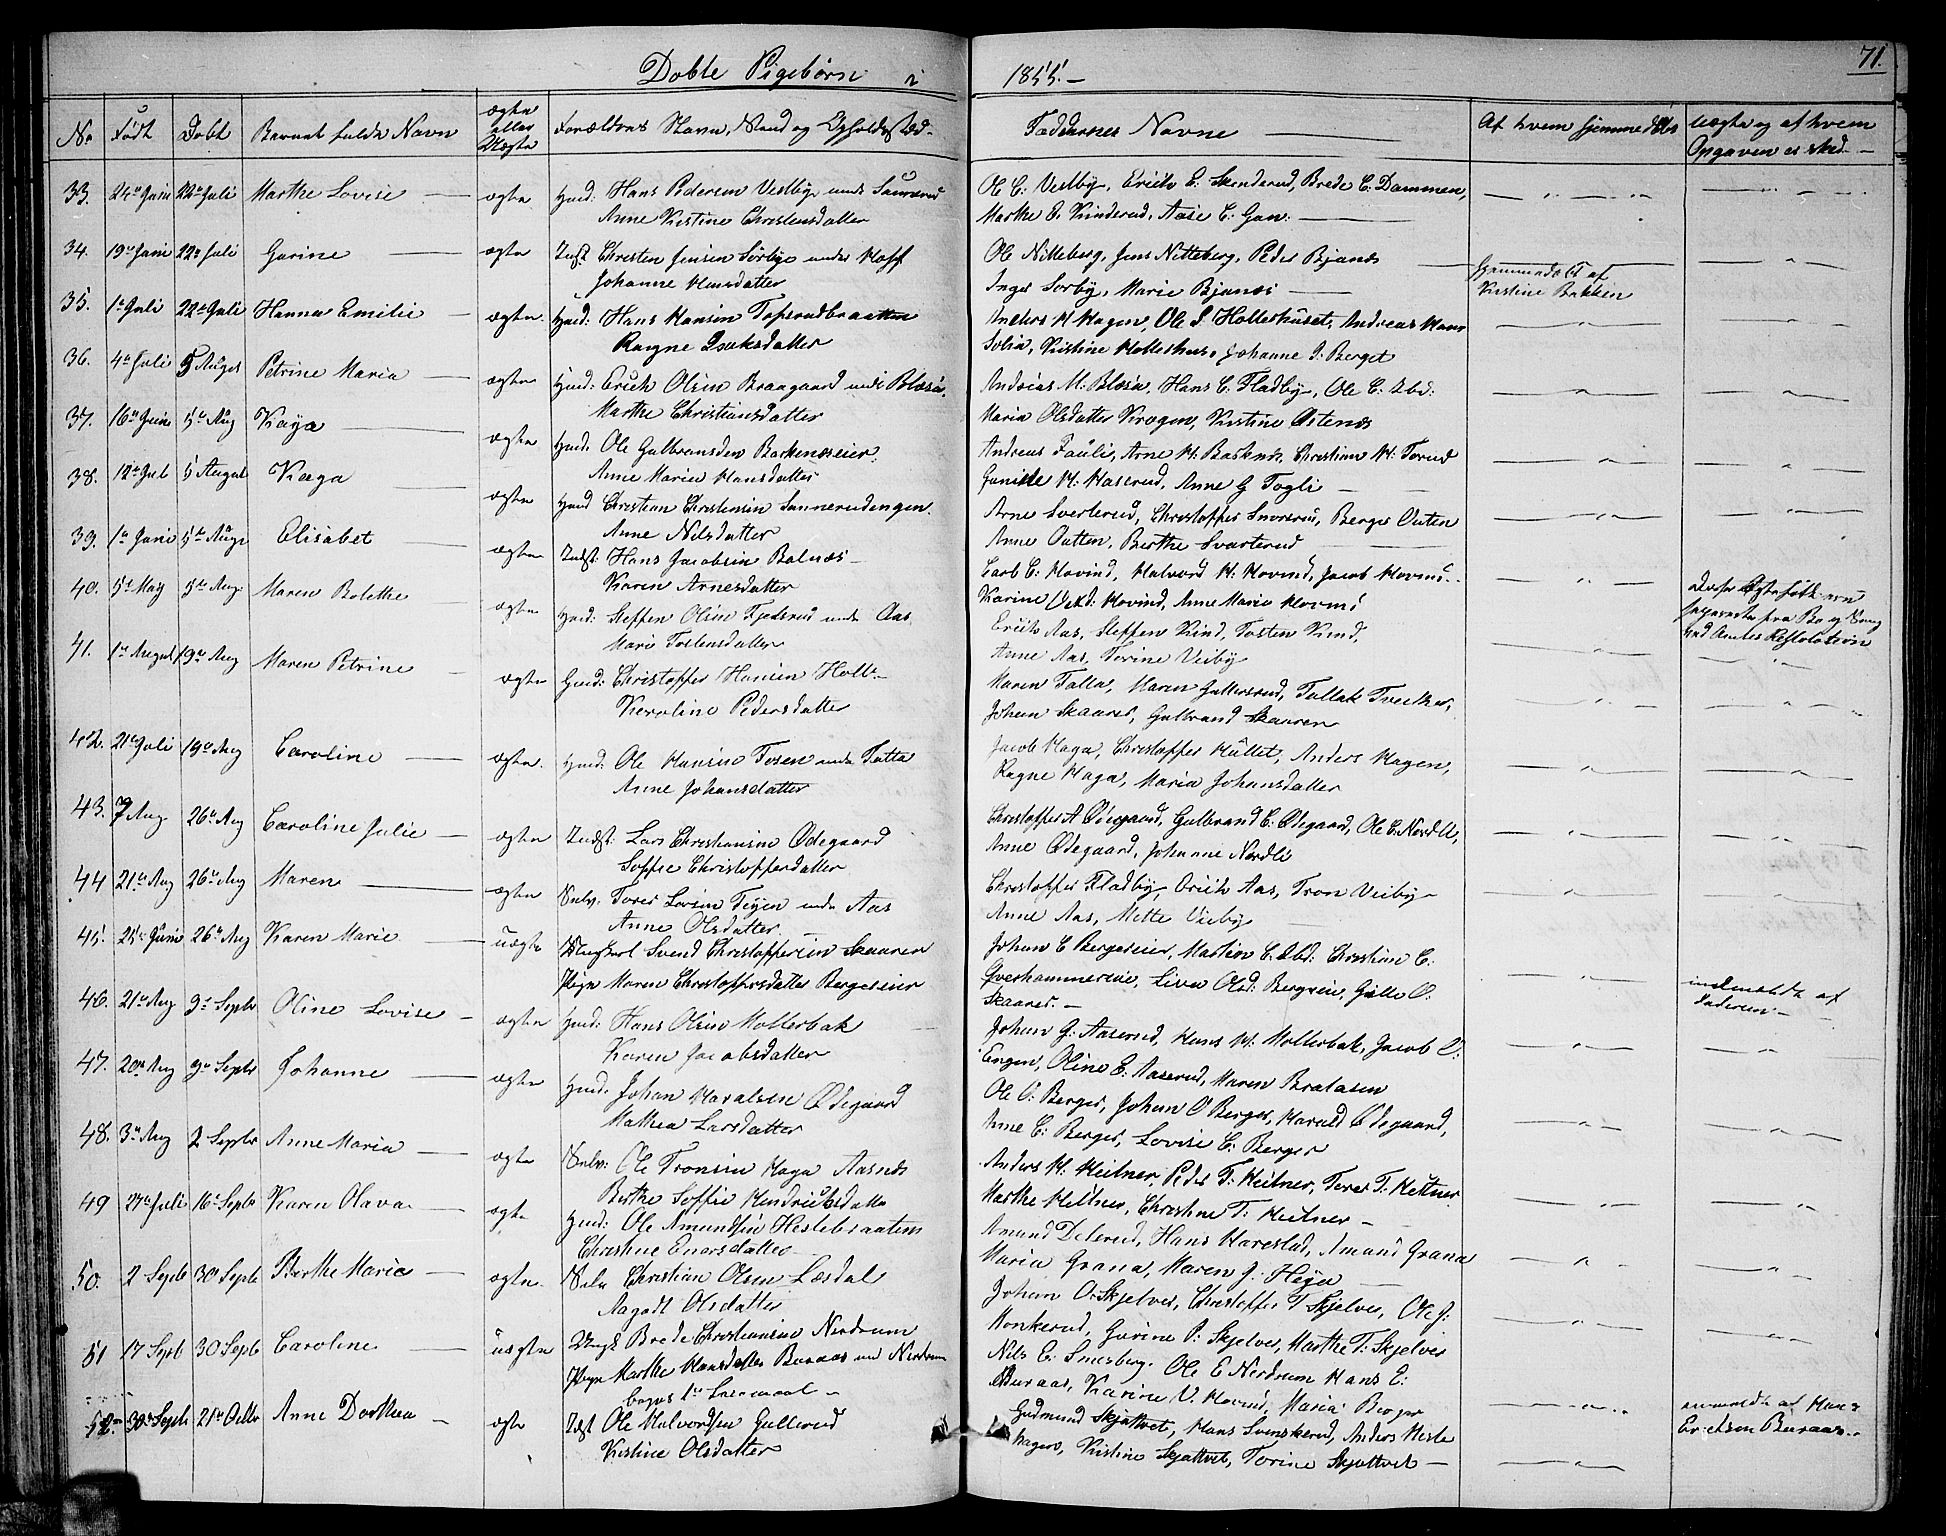 71.
Døbte Pigebørn i 1855.
No Født Døbt Barnets fulde Navn ægte eller Uægte Forældres Navn, Stand og Opholdssted Faddernes Navne Af hvem hjemmedøbt Uægte og af hvem Opgaven er skeed
33. 24 Juni 22 Juli Marthe Lovise ægte Hmd: Hans Pedersen Vestby unde
Anne Kistine Christensdatter
Ole C: Vestby, Erich E. Skinderud, Brede C. Dammen,
Marthe E. Kinderud, Aase C. Gan.
34. 19 Juni 22 Juli Gurine ægte Indst Christen Jensen Sørbye under Hoff
Johanne Hansdatter
Ole Nitteberg, Jens Nitteberg, Peder Bjanes
Inger Sørby, Marie Bjanæs
hjemmedøbt af
Kistine Bakken
35. 1 Juli 22 Juli Hanna Emilie ægte Hmd: Hans Hansen Topsrudbraatten
Ragne Isaksdatter
Anders H Hagen, Ole S. Holleshuset, Andreas Hans
Solia, Kistine Holleshus. Johanne J. Berget
36. 4 Juli 5 August Petrine Maria ægte Hmd: Erich Olsen Braagaard unde Blæsia
Marthe Christiansdatter
Andreas M. Blæsia, Hans C. Fladby, Ole C. ibd:
Maria Olsdatter Krogen, Kistine Østenes
37. 16 Juni 5 Aug Kaja ægte Hmd: Ole Gulbransden Barkenæseier
Anne Maria Hansdatter
Andreas Fauli, Arne H. Basknes, Christian H. Torud
H. Haserud, Anne G Fogli
38. 12 Juli 5 August Kaga ægte Hmd Christian Christensen Sannerudengen
Anne Nilsdatter
Arne Svarterud, Christoffer Snorerud, Berger Outen
Anne Outten, Berthe Svarterud
39. 1 Juni 5 Aug Elisabet ægte Indst: Hans Jacobsen Balnæs
Karen Arnesdatter
Carl C. Hovind, Halvord H. Hovind, Jacob Hovind
Karine Hovind, Anne Maria Hovind
40. 5 May 5 Aug Maren Bolethe ægte Hmd: Steffen Olsen Fjedsrud unde Aas
Mari Tostensdatter
Erich Aas, Steffen Kind, Tosten Kind,
Anne Aas, Torine Veiby
41. 1 August 19 Aug Maren Petrine ægte Gmd: Christoffer Hansen Holt
Karoline Pedersdatter
Maren Talla, Maren Gullersrud, Tallak Tveiter,
Johan Skaarer, Gulbrand Skaaren
42. 21 Juli 19 Aug Caroline ægte Hmd: Ole Hansen Fosen unde Tatta
Anne Johansdatter
Jacob Haga, Christoffer Hullet, Anders Hagen,
Ragne Haga, Maria Johansdatter
43. 7 Aug 26 Aug Caroline Julie ægte Indst: Lars Christiansen Ødegaard
Soffie Christoffersdatter
Christoffer A Ødegaard, Gulbrand C. Ødegaard, Ole C. Nordli,
Anne Ødegaard, Johanne Nordli
44 21 Aug 26 Aug Maren ægte Selv. Torer Larsen Tejen unde Aas
Anne Olsdatter
Christoffer Fladby, Erich Aas, Tron Veiby
Anne Aas, Mette Veiby
45. 25 Juni 26 Aug Karen Marie uægte Ungkarl Svend Christoffersen Skaaren
Pige Maren Christoffersdatter Bergereier
Johan C Bergereier, Martin C. ibd: Christian C.
Qverhammereie, Lisa Olsd: Bergseie, Gulle O.
Skaarer.
indmeldt af
Faderen
46. 21 Aug 9 Septbr Oline Lovise ægte Hmd: Hans Olsen Mollerbak
Karen Jacobsdatter
Johan G. Aaserud, Hans H. Mollerbak, Jacob O.
Engen, Oline E. Aaserud, Maren Bratasen
47. 20 Aug 9 Septbr Johanne ægte Hmd. Johan Haralsen Ødegaard
Mathea Larsdatter
Ole O. Berger, Johan O Berger, Harald Ødegaard,
Anne C. Berger, Lovise C. Berger
48. 3 Aug 2 Septbr Anne Maria ægte Selv: Ole Tronsen Haga Aasnes
Berthe Soffie Hendriksdatter
Anders H. Heitner, Peder T. Heitner, Torer T. Heitner
Marthe Heitner, Christine T. Heitner
49 27 Juli 16 Septbr Karen Olava ægte Hmd: Ole Amundsen Hestebraaten
Christine Enersdatter
Amund Delerud, Hans Harestad, Amund Grana
Maria Grana, Maren J. Heja
50. 2 Septb 30 Septb Berthe Maria ægte Selv Christian Olsen Læsdal
Aagodt Olsdatter
Johan O. Skjelver, Christoffer T. Skjelver, Ole J.
Honkerud, Gurine P. Skjelver, Marthe T. Skjelver
51 17 Septb 30 Septb Caroline uægte Ungk Brede Christiansen Nerdrum
Pige Marthe Hansdatter Buraas ved Nerdrum
begges 1ste Leiermaal
Nils E. Smesberg. Ole E Nerdrum Hans E:
Buraas, Karine V. Hovind, Maria Berger
anmeldt af Hans
Erichsen Buraas
52. 30 Septb 21 Octbr Anne Dorthea ægte Indst Ole Halvordsen Gullerud
Kistine Olsdatter
Gudmund Skjattvet, Hans Svenskerud, Anders Heste
hagen, Kristine Skjattvet, Torine Skjattvet